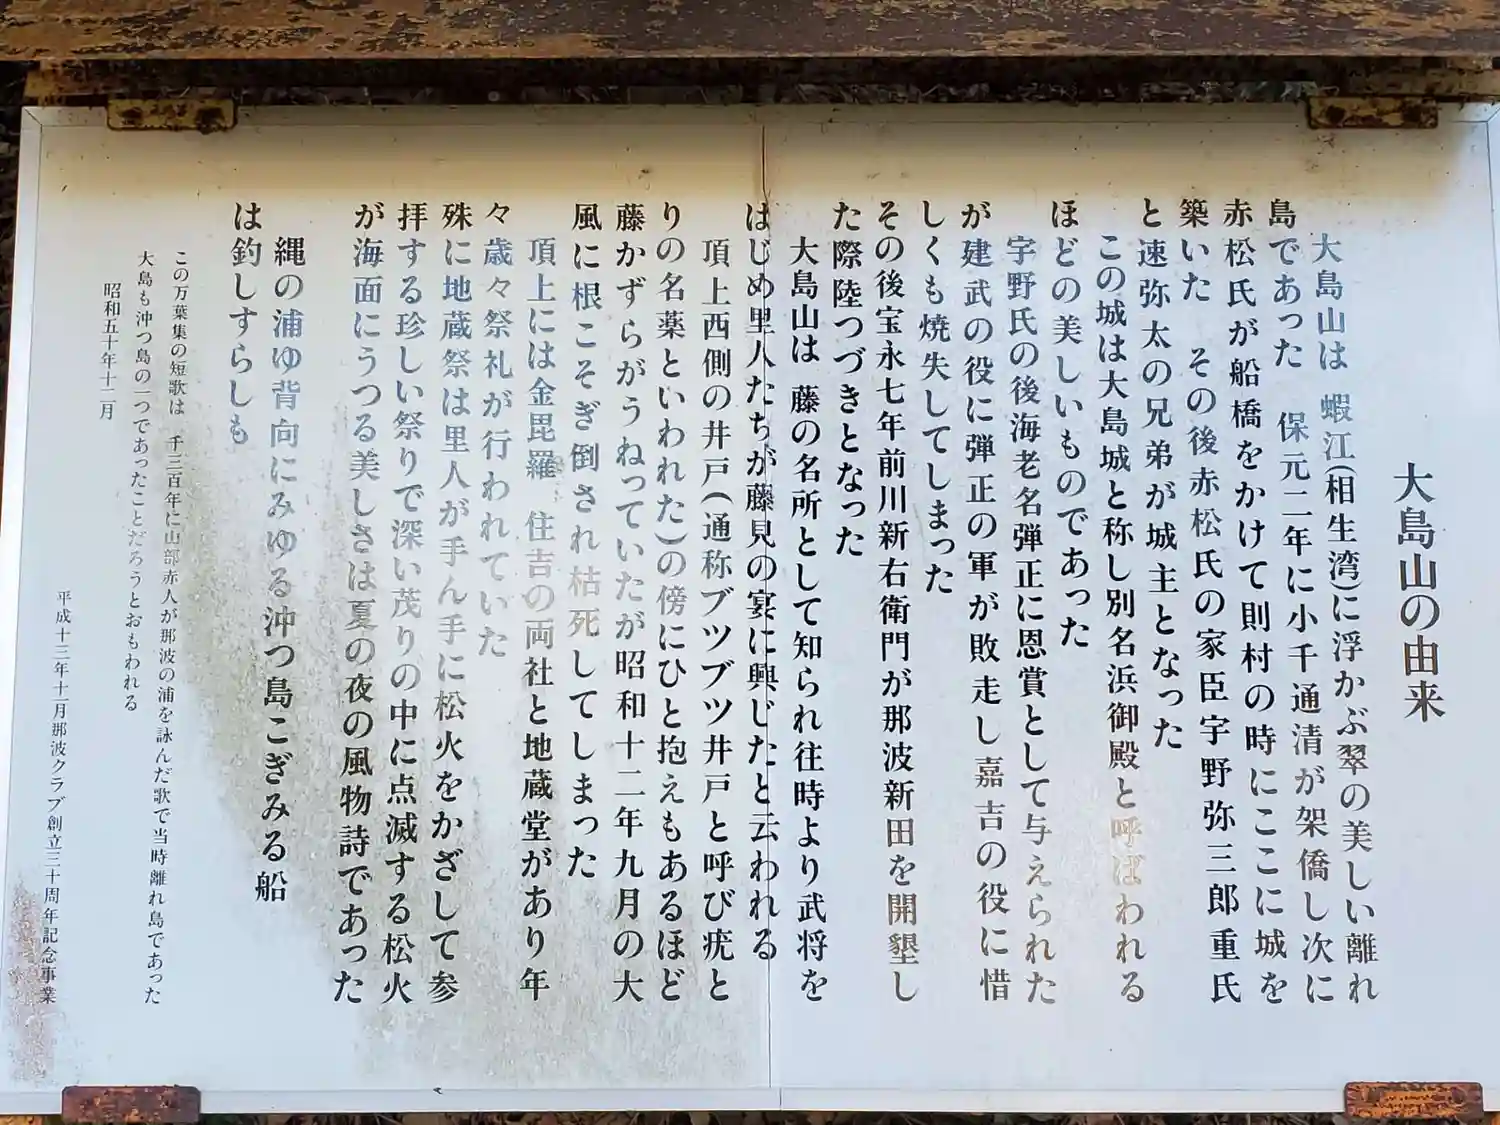 大島山の由来
大島山は 蝦江(相生湾)に浮かぶ翠の美しい離れ
島であった 保元二年に小千通清が架僑し次に
赤松氏が船橋をかけて則村の時にここに城を
築いた その後赤松氏の家臣宇野弥三郎重氏
と速弥太の兄弟が城主となった
この城は大島城と称し別名浜御殿と呼ばわれる
ほどの美しいものであった
宇野氏の後海老名弾正に恩賞として与えられた
が建武の役に弾正の軍が敗走し嘉吉の役に惜
しくも焼失してしまった
その後宝永七年前川新右衛門が那波新田を開墾し
た際陸つづきとなった
大島山は 藤の名所として知られ往時より武将を
はじめ里人たちが藤見の宴に興じたと云われる
頂上西側の井戸(通称ブツブツ井戸と呼び疣と
りの名薬といわれた)の傍にひと抱えもあるほど
藤かずらがうねっていたが昭和十二年九月の大
風に根こそぎ倒され枯死してしまった
頂上には金毘羅 住吉の両社と地蔵堂があり年
々歳々祭礼が行われていた
殊に地蔵祭は里人が手ん手に松火をかざして参
拝する珍しい祭りで深い茂りの中に点滅する松火
が海面にうつる美しさは夏の夜の風物詩であった
縄の浦ゆ背向にみゆる沖つ島こぎみる船
は釣しすらしも
この万葉集の短歌は 千三百年に山部赤人が那波の浦を詠んだ歌で当時離れ島であった
大島も沖つ島の一つであったことだろうとおもわれる
昭和五十年十二月
平成十三年十一月那波クラブ創立三十周年記念事業